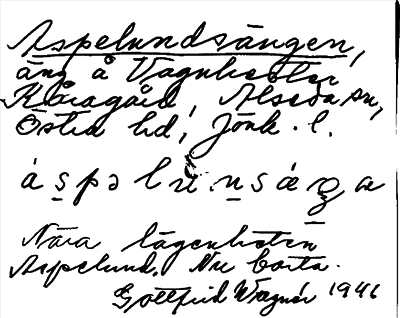 Aspelundsängen,
äng å Vagnhester
Kåragård, Alseda sn,
Östra hd, Jönk. l.
áspəlu̇nsáŋa
Nära lägenheten
Aspelund. Nu borta.
Gottfrid Wagnér 1946